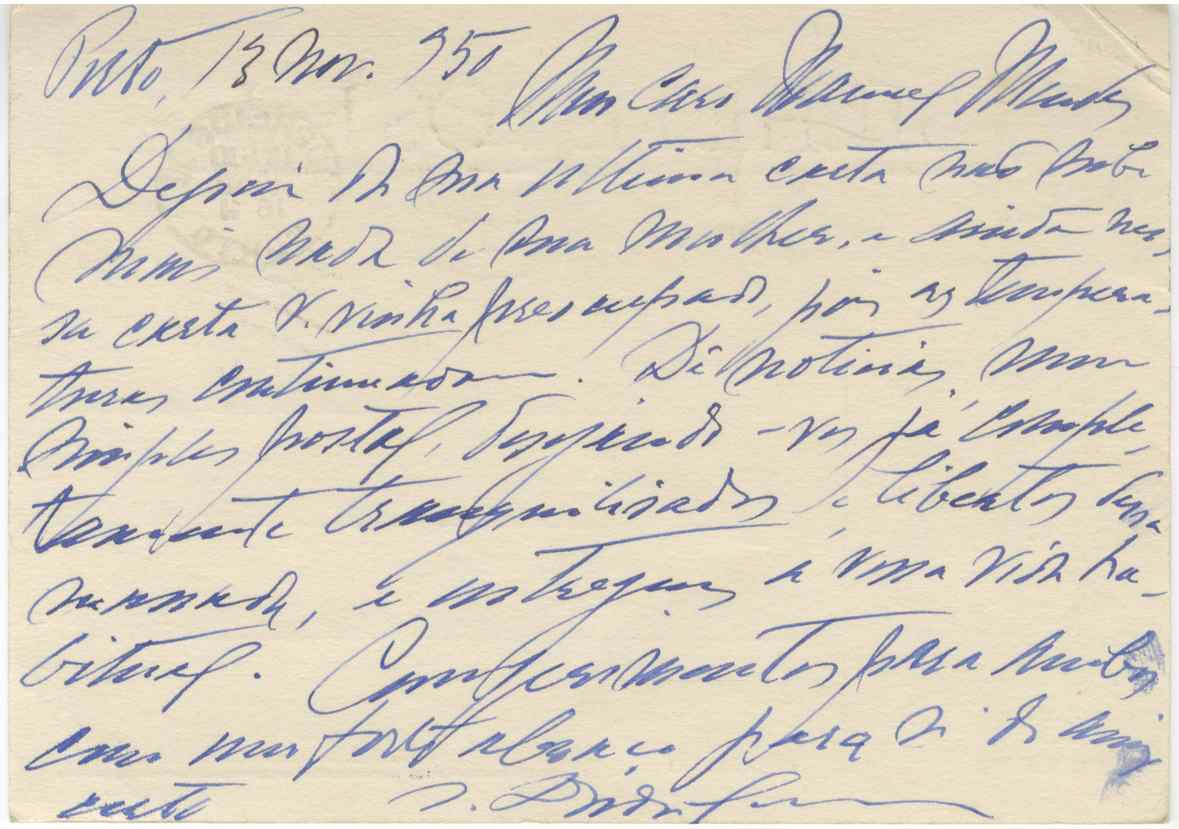 Porto, 13 Nov. 950
Meu caro Manuel Mendes
Depois da sua ultima carta não soube
mais nada de sua mulher, e ainda nes-
sa carta V. vinha preocupado, pois as tempera-
turas continuadam. Dê noticias, num
simples postal, desejando-vos já comple-
tamente tranquilisados e libertos dessa
maçada, e entregues a vossa vida ha-
bitual. Cumprimentos para ambos
com um forte abraço para si do ami